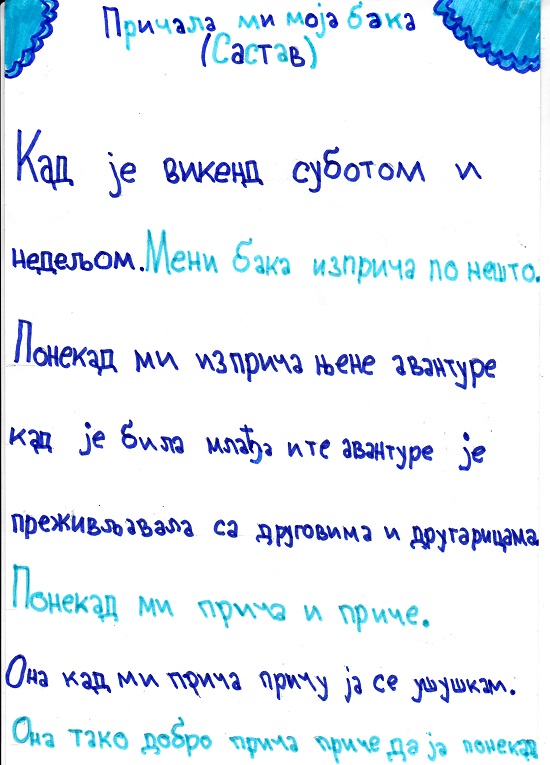 Причала ми моја бака
(Састав)
Кад је викенд суботом и
недељом. Мени бака изприча по нешто.
Понекад ми изприча њене авантуре
кад је била млађа и те авантуре је
преживљавала са друговима и другарицама.
Понекад ми прича и приче.
Она кад ми прича причу ја се ушушкам.
Она тако добро прича приче да ја понекад